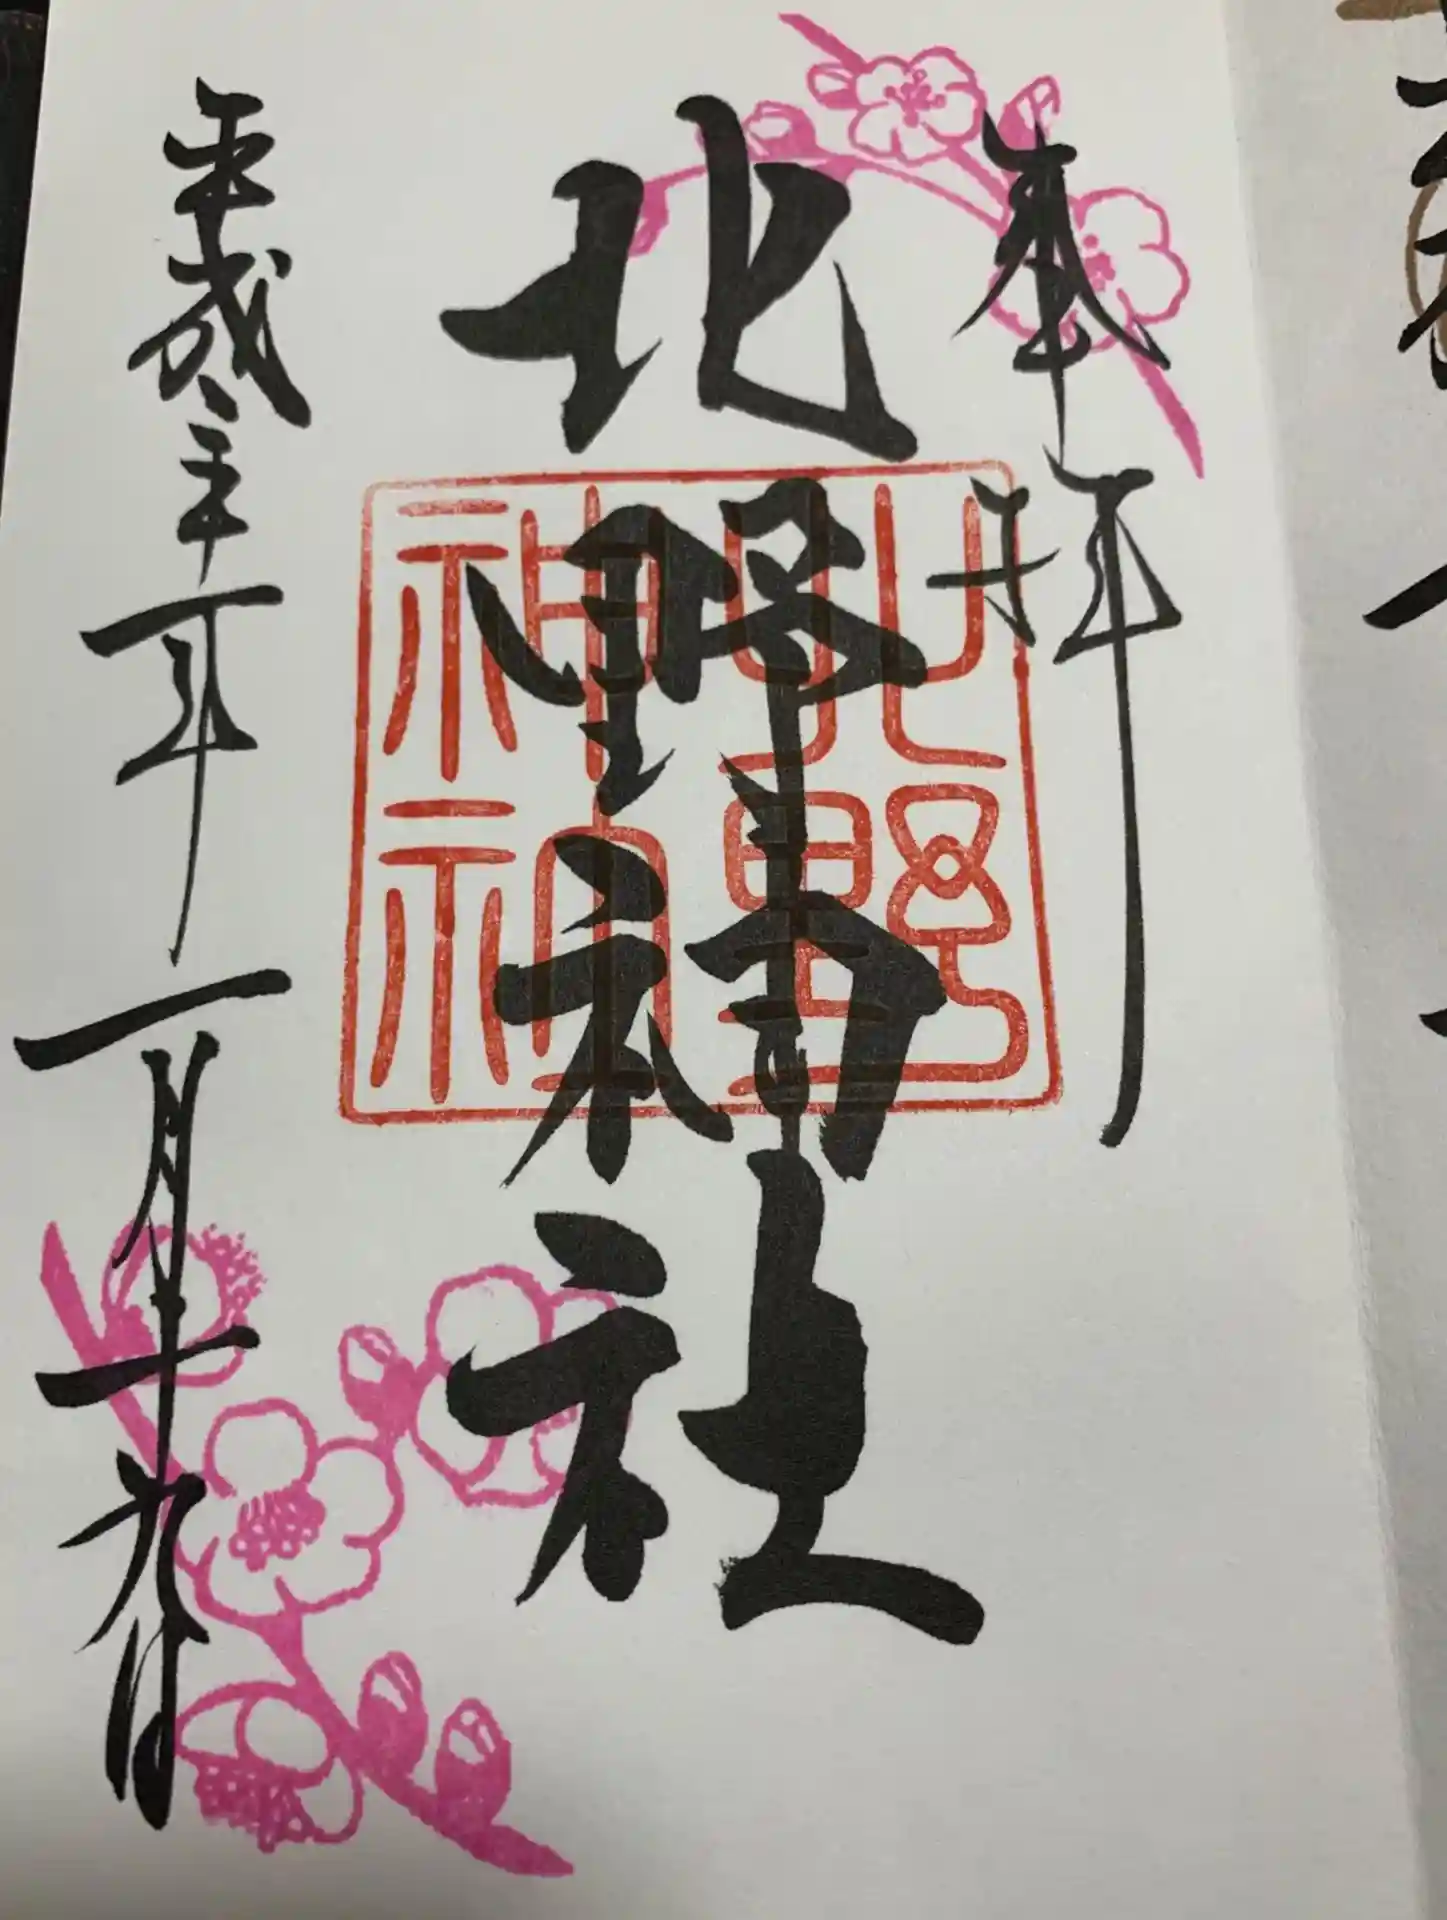 奉拝
北野神社
北野神社
平成三十一年一月十九日